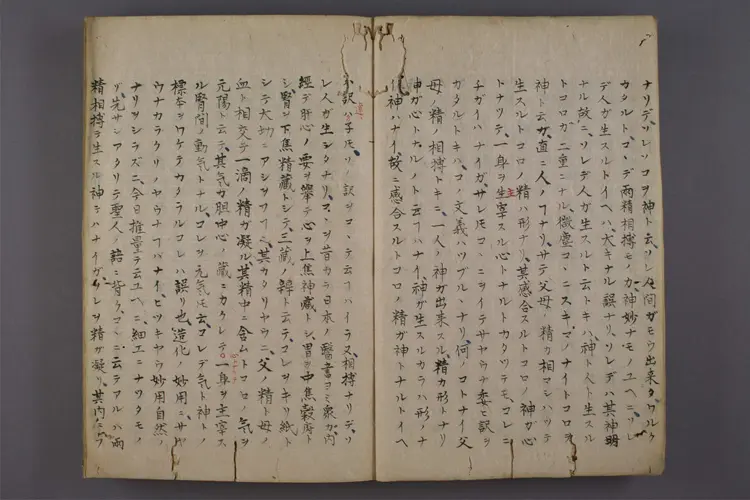 ナリデ、ソレソコヲ神ト云、ソレ人間ガモウ出来タワルク
カタルト、コヽデ両精相搏モノガ、神妙ナモノユヘニ、ソレ
デ人ガ生スルトイヘハ、大キナル誤ナリ、ソレデハ其神明
ナル故ニ、ソレデ人ガ生スルト云トキハ、神ト人ト生スル
トコロガ二重ニナル、微塵コヽニスキマノナイトコロヲ
神ト云ガ、直ニ人ノフナリ、サテ父母ノ精カ相マシハツテ
生スルトコロノ精ハ形ナリ、其感合スルトコロノ神ガ心
トナリテ、一身ヲ主宰スル心トナルトカタツテモ、コレニ
チガイハナイガ、サレモコヽニヲイテサヤウナ委ヒ訳ヲ
カタルトキハ、コノ文義ハツブルヽナリ、何ノコトナイ父
母ノ精ノ相搏トキニ、一人ノ神ガ出来スル、精カ形トナリ
神ガ心トナルノト云フハナイ、神ガ生スルカラハ形ノナ
イ神ハナイ、故ニ感合スルトコロノ精ガ神トナルトイヘ
ハ、訳ハ子モソノ訳ヲコヽテ云フハイラヌ、相搏ナリデ、ソ
レ人ガ生シタナリ、スヽシ昔カラ日本ノ醫書ヨミ衆カ、内
經デ肝心ノ要ヲ挙テ、心ヲ上焦神蔵トシ、胃ヲ中焦穀府ト
シ、腎ヲ下焦精蔵トシテ、三蔵ノ辯ト云テ、コレヲキリ紙ト
シテ大切ニアシラフフニ、其カタリヤウニ、父ノ精ト母ノ
血ト相交テ一滴ノ精ガ凝ル、其精中ニ含ムトコロノ気ヲ
元陽ト云テ、其気カ胆中心ノ蔵ニカクレテ、一身ヲ主宰ス
ル腎間ノ動気トナル、コレヲ元気ト云、コレデ気ト神トノ
標本ヲワケテカタラルコレハ誤リ也、造化ノ妙用ニ、サヤ
ウナカラクリノヤウナフハナイ、ヒツキヤウ妙用自然ノ
ナリヲシラズニ、今日推量テ云ユヘニ、細工ニナツタモノ
ゾ、先サシアタリテ聖人ノ語ニ背ク、コヽニ云テアルハ両
精相搏テ生スル神ニハナイガ、ソレヲ精ガ凝リ、其内ニ